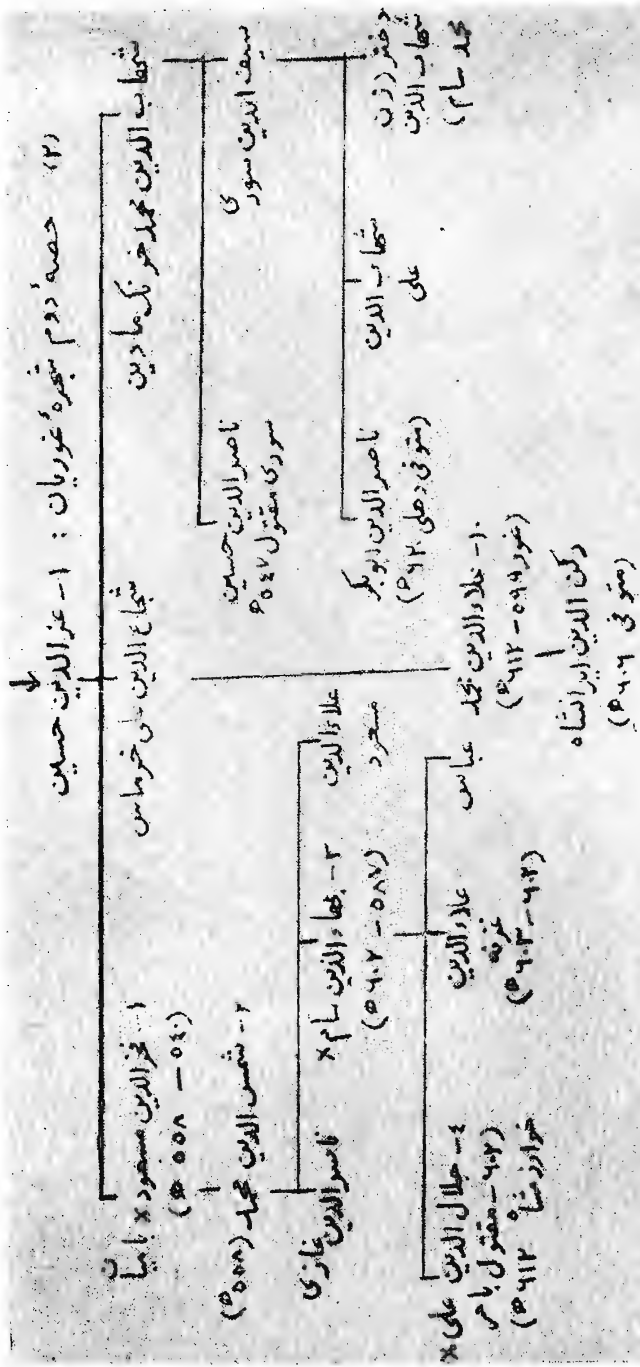 (۲) حصهٔ دوم شجرهٔ غوریان : ۱- عزالدین حسین
شهاب الدین محمد خرنک مادین
شجاع الدین علی خرماس
۱- فخرالدین مسعود × بامیان
(۵۴۰ – ۵۵۸ ھ)
سیف الدین سوری
ناصر الدین حسین
سوری مقتول ۵٤۷ ھ
۲- شمس الدین محمد (۵۵۸ ھ)
دختر (زن
شهاب الدین
محمد سام)
شهاب الدین
علی
ناصر الدین ابو بکر
(متوفی دهلی ۶۲۰ ھ)
۱۰- علاءالدین محمد
(غور ۵۹۹ – ۶۱۲ ھ)
رکن الدین ایرانشاه
(متوفی ۶۰۶ ھ)
علاءالدین
مسعود
۳- بهاءالدین سام ×
(۵۸۷ – ۶۰۲ ھ)
ناصر الدین
غازی
عباس
علاءالدین
غزنه
(۶۰۲ – ۶۰۳ ھ)
٤- جلال الدین علی ×
(۶۰۲ – مقتول بامر
خوارزمشاه ۶۱۲ ھ)